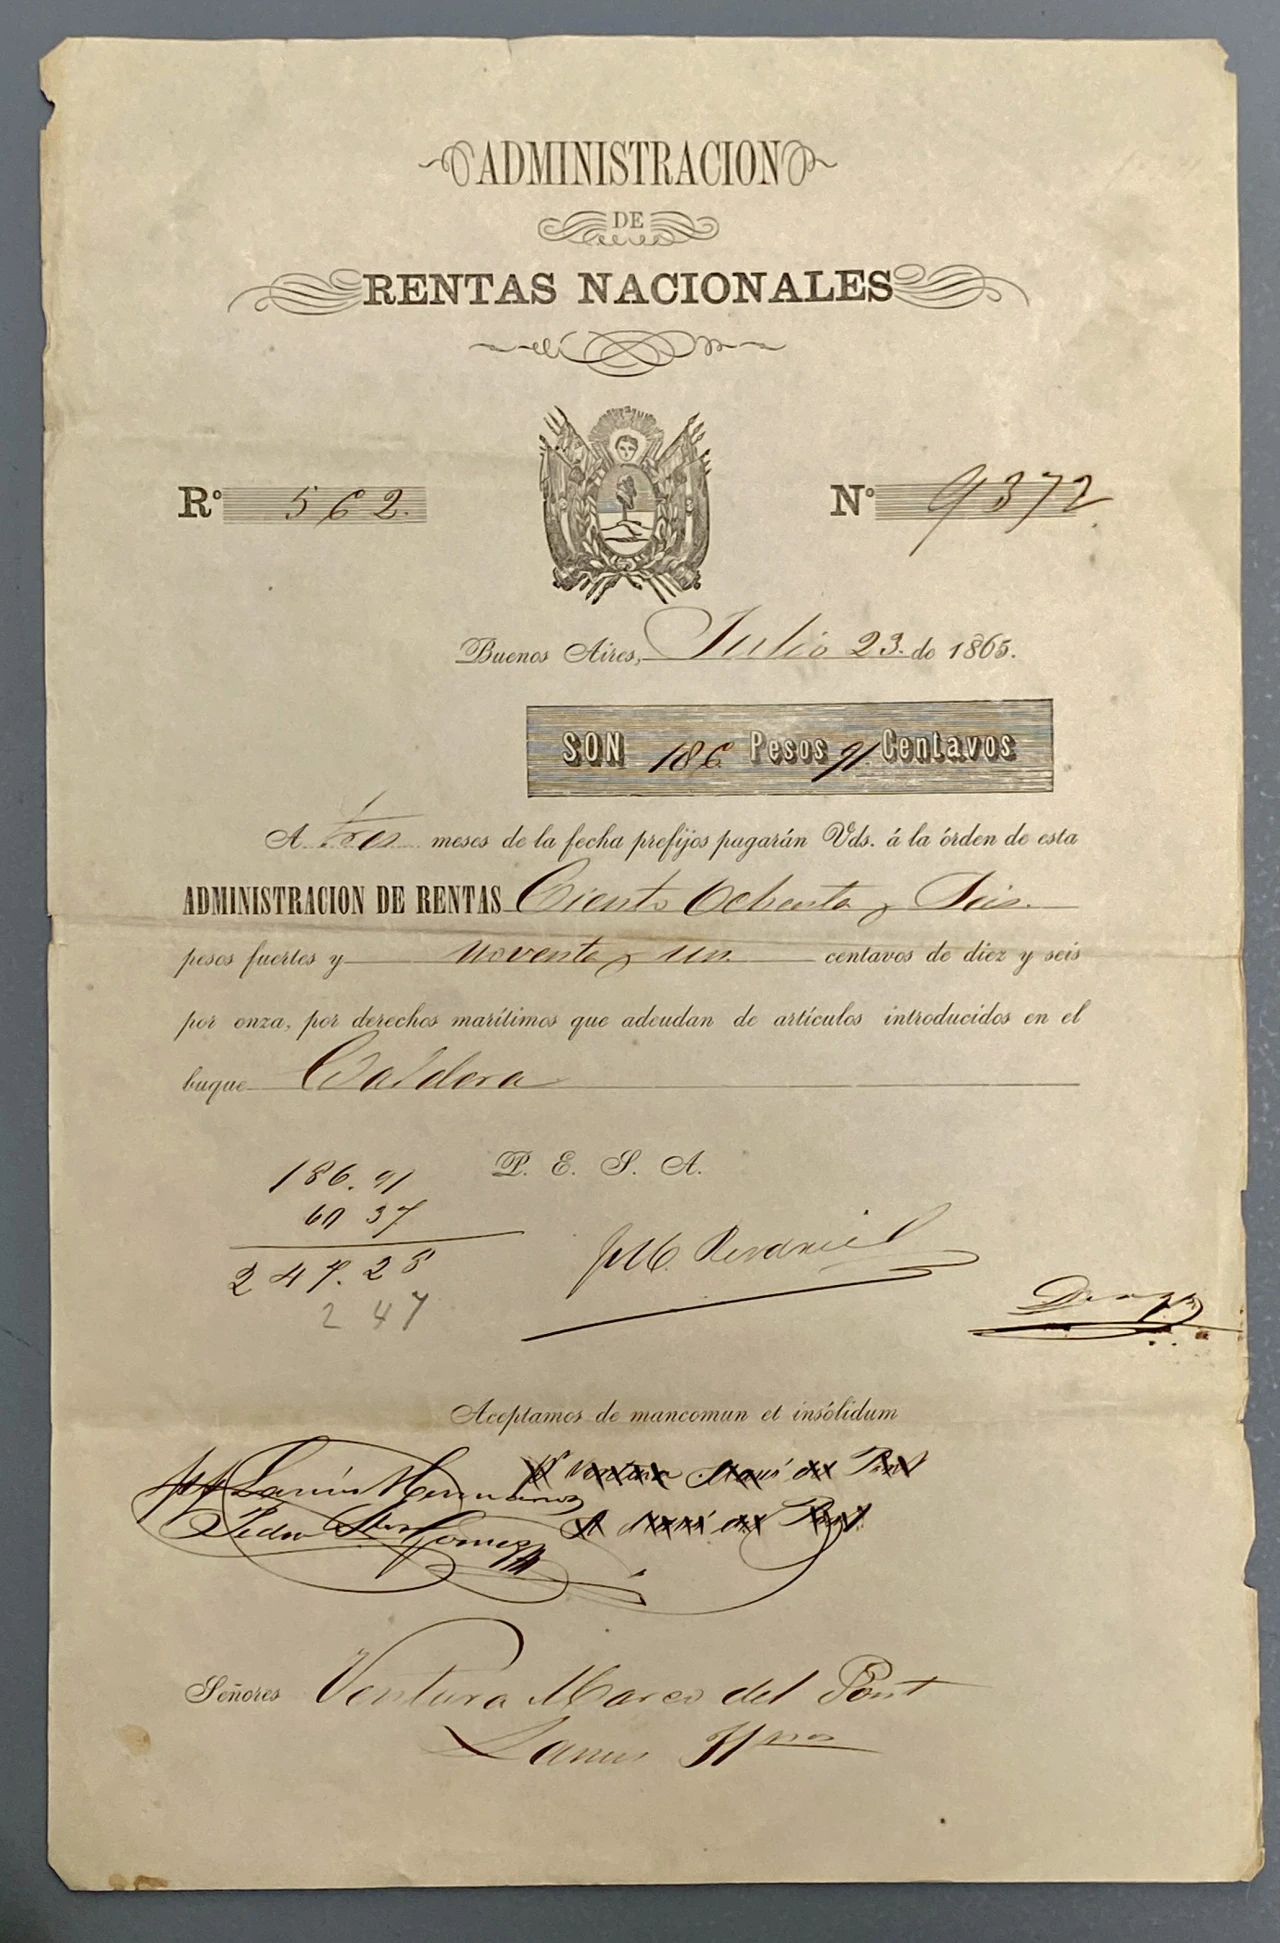 ADMINISTRACION
DE
RENTAS NACIONALES
Rº 562. Nº 9372
Buenos Aires, Julio 23. de 1865.
SON 186 Pesos 91. Centavos
A tres meses de la fecha prefijos pagarán Vds. á la órden de esta
ADMINISTRACION DE RENTAS Ciento Ochenta y Seis.
pesos fuertes y noventa y un. centavos de diez y seis
por onza, por derechos marítimos que adeudan de artículos introducidos en el
buque Caldera
186.91
P. E. S. A.
60 37
247.28
247
Aceptamos de mancomun et insólidum
pp Lanús Hermanos
Pedro Gomez
Señores Ventura Marco del Pont
Lanus Hnos